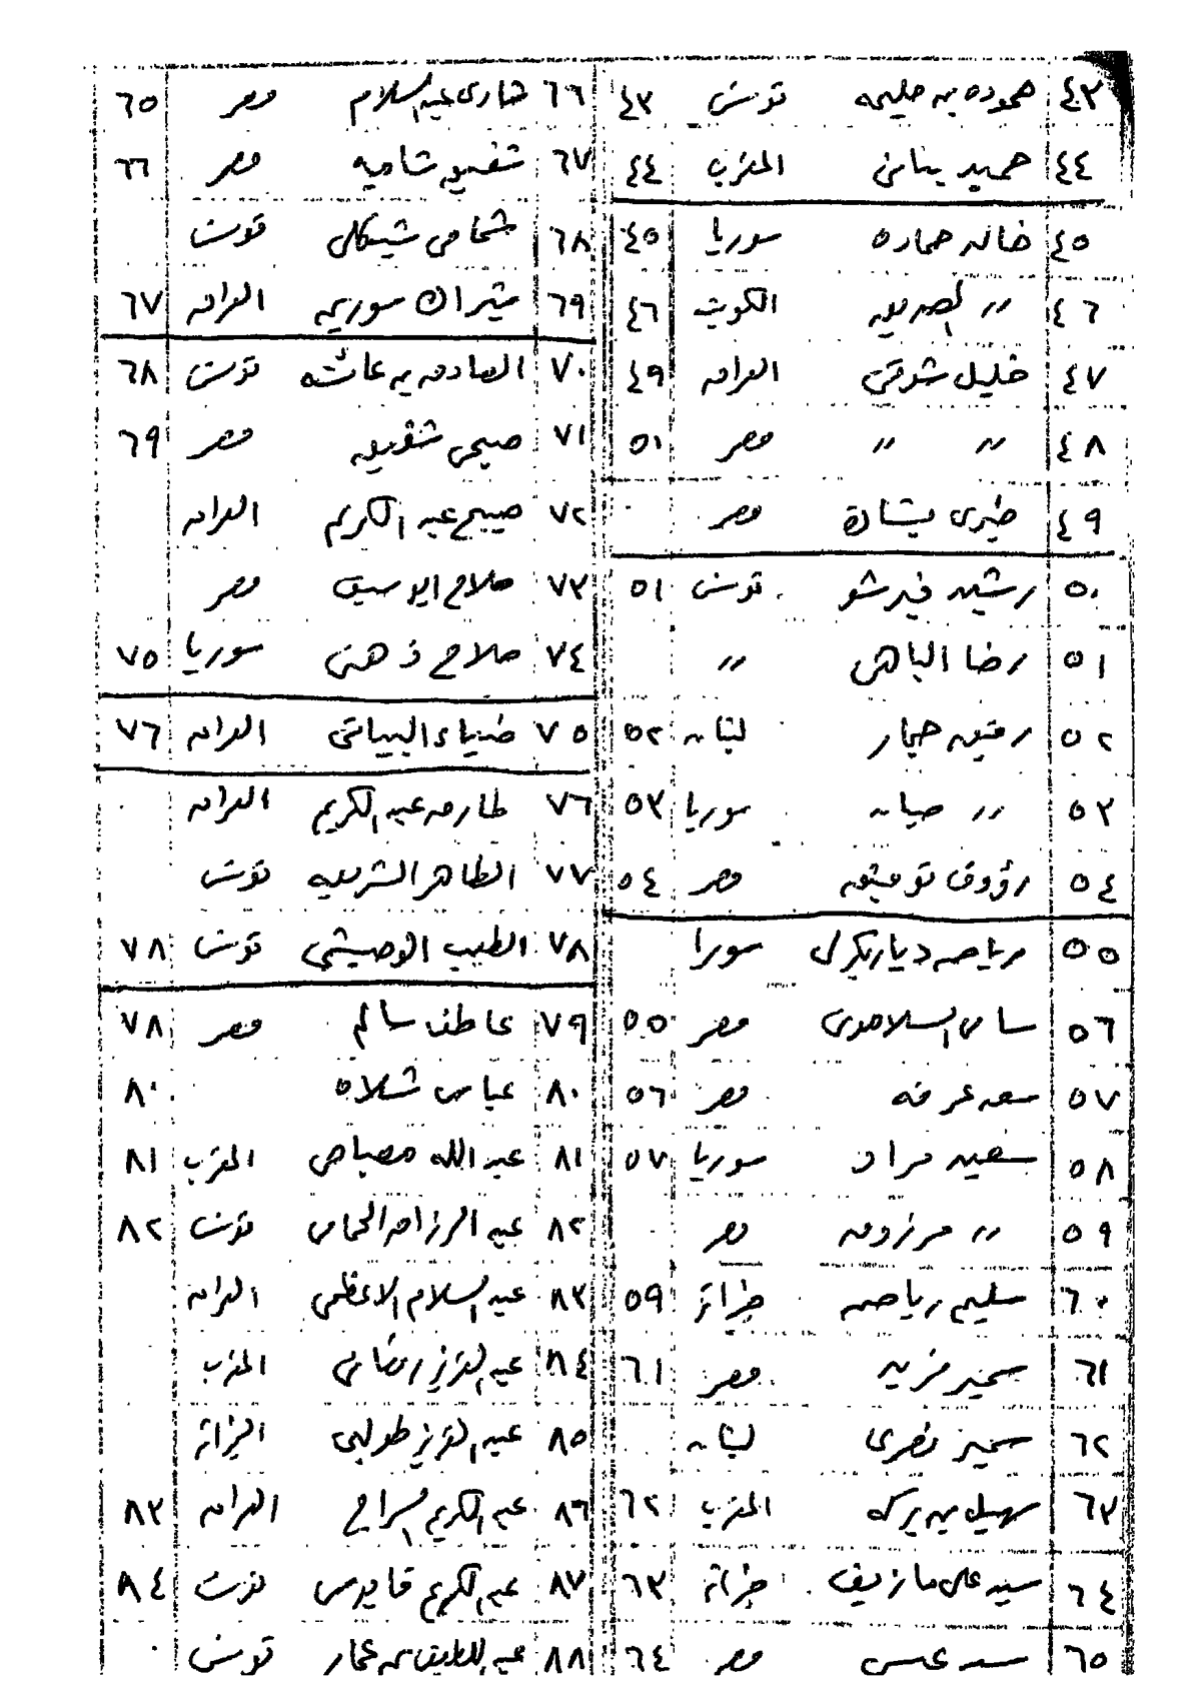 ٤٣ حموده بن حليمه تونس ٤٣
٤٤ حميد بناني المغرب ٤٤
٤٥ خالد حماده سوريا ٤٥
٤٦ 〃 الصديق الكويت ٤٦
٤٧ خليل شوقي العراق ٤٩
٤٨ 〃 〃 مصر ٥١
٤٩ خيري بشارة مصر
٥٠ رشيد فرشو تونس ٥١
٥١ رضا الباهي 〃
٥٢ رفيق حجار لبنان ٥٢
٥٣ 〃 صبان سوريا ٥٣
٥٤ رؤوف توفيق مصر ٥٤
٥٥ رياض ديار بكرلي سورا
٥٦ سامي السلاموني مصر ٥٥
٥٧ سعد عرفه مصر ٥٦
٥٨ سعيد مراد سوريا ٥٧
٥٩ 〃 مرزوق مصر
٦٠ سليم رياض جزائر ٥٩
٦١ سمير فريد مصر ٦١
٦٢ سمير نصري لبنان
٦٣ سهيل بن بركه المغرب ٦٢
٦٤ سيد علي مازيف جزائر ٦٣
٦٥ سيد عيسى مصر ٦٤
٦٦ شادي عبد السلام مصر ٦٥
٦٧ شفيق شاميه مصر ٦٦
٦٨ شيكلي تونس
٦٩ العراق ٦٧
٧٠ الصادق بن عائشه تونس ٦٨
٧١ صبحي شفيق مصر ٦٩
٧٢ صبيح عبد الكريم العراق
٧٣ صلاح ابو سيف مصر
٧٤ صلاح ذهني سوريا ٧٥
٧٥ ضياء البياتي العراق ٧٦
٧٦ طارق عبد الكريم العراق
٧٧ الطاهر الشريعه تونس
٧٨ الطيب الوحيشي تونس ٧٨
٧٩ عاطف سالم مصر ٧٨
٨٠ عباس شلاه ٨٠
٨١ عبد الله مصباحي المغرب ٨١
٨٢ عبد الرزاق الحمامي تونس ٨٢
٨٣ عبد السلام الاعظمي العراق
٨٤ عبد العزيز رمضاني المغرب
٨٥ عبد العزيز طولبي الجزائر
٨٦ عبد الكريم السراج العراق ٨٣
٨٧ عبد الكريم قابوس تونس ٨٤
٨٨ عبد اللطيف بن عمار تونس